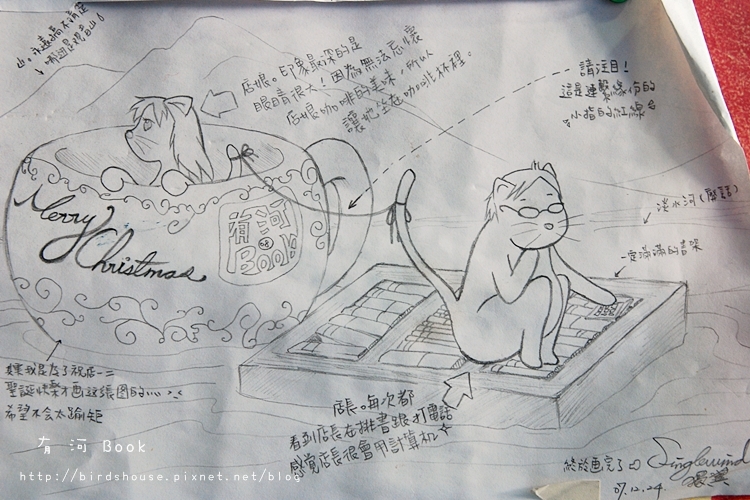 山。永遠搞不清楚
哪邊是觀音山。
店娘。印象最深的是
眼睛很大!因為無法忘懷
店娘咖啡的美味,所以
讓她坐在咖啡杯裡。
請注目!
這是連繫線你的
小指的紅線。
淡水河(廢話)
一定滿滿的書架
Merry
Christmas
有河
BOOK
其實我是為了祝店一二
聖誕快樂才畫這張圖的… >_<
希望不會太踰矩
店長。每次都
看到店長在排書跟打電話
感覺店長很會用計算机
終於畫完了
Singlewind
07.12.24.
有 河 Book
http://birdshouse.pixnet.net/blog